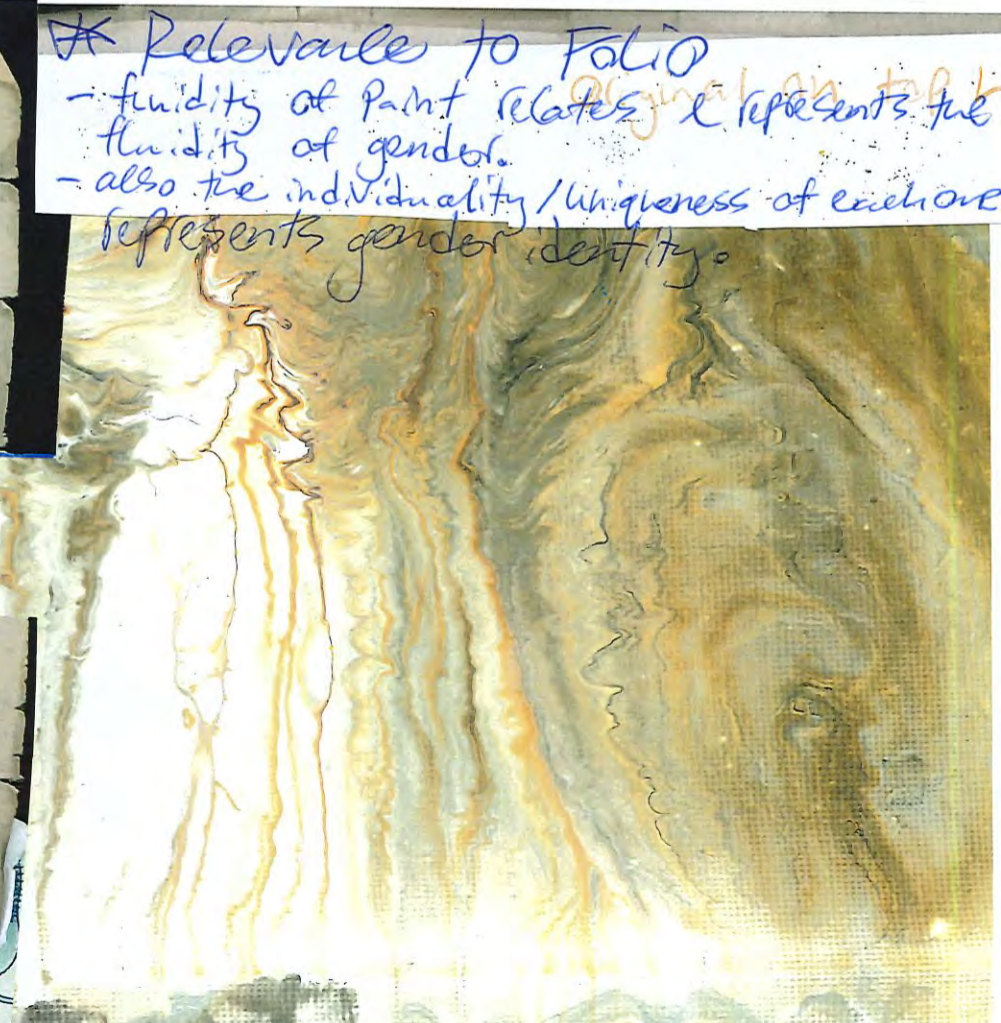 * Relevance to Folio
- fluidity of Paint relates & represents the
fluidity of gender.
- also the individuality/uniqueness of each one
represents gender identity.
original on top